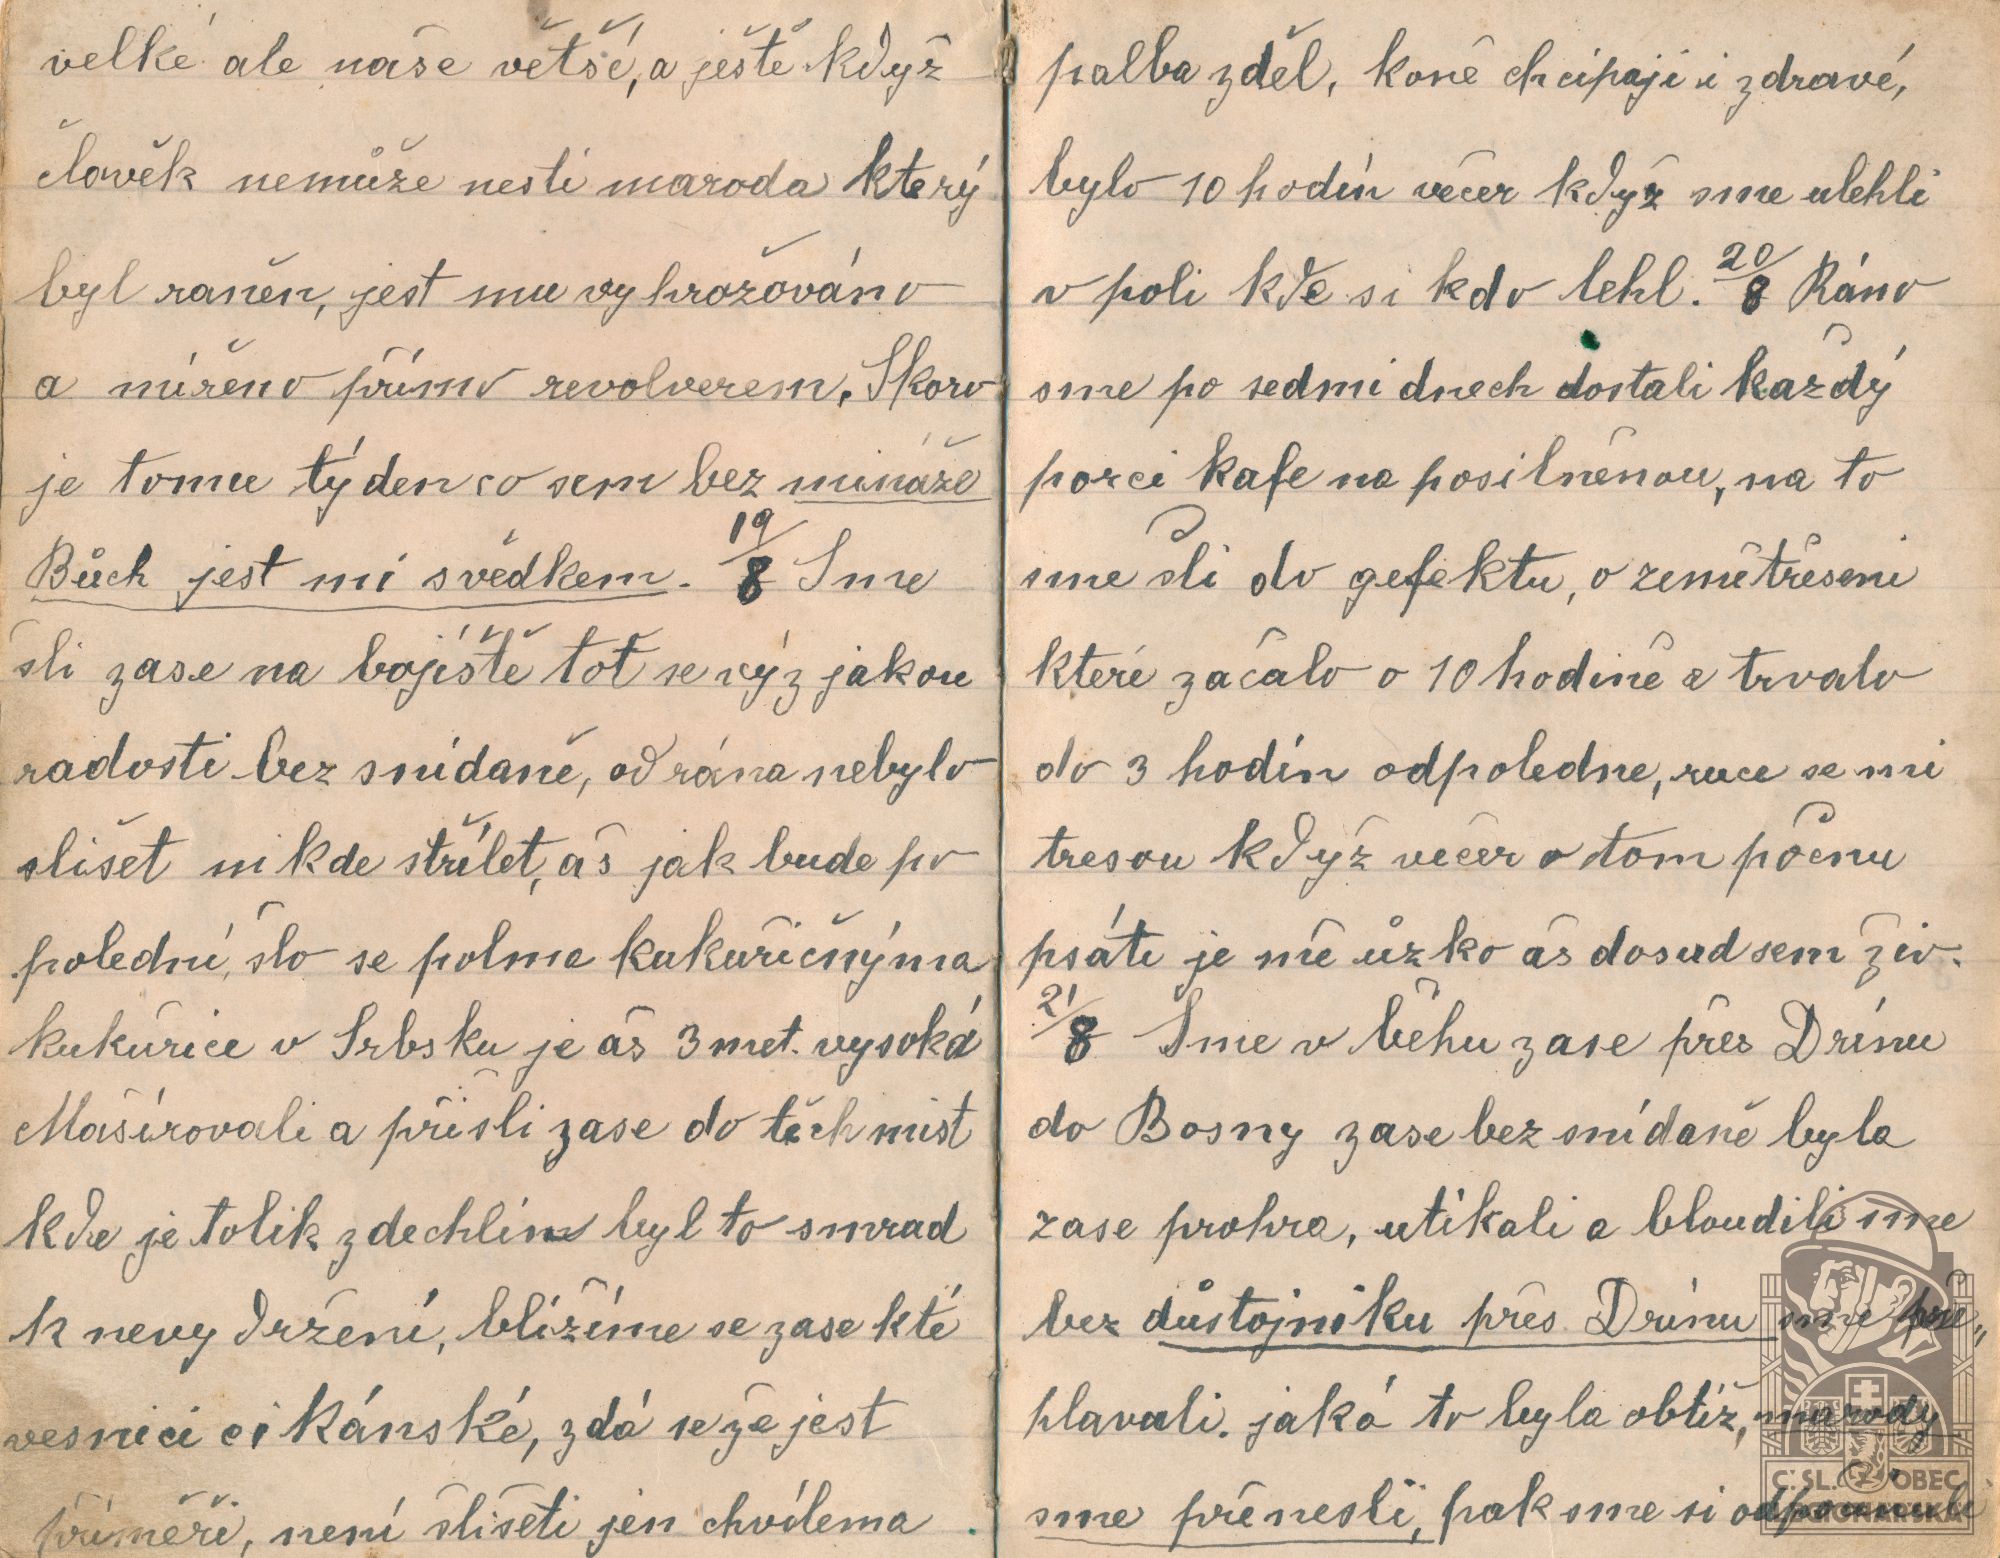 velké ale naše většé, a ještě když
človĕk nemůže nesti maroda který
byl raněn, jest mu vyhrožováno
a mířeno přímo revolverem. Skoro
je tomu týden co sem bez mináže
Bůch jest mi svědkem. 19/8 Sme
šli zase na bojíště toť se výz jakou
radosti bez snídaně, od rána nebylo
slišet nikde střílet, aš jak bude po
polední, šlo se polma kukuřičnýma
kukuřice v Srbsku je aš 3 met. vysoká
Mašírovali a přišli zase do těch mist
kde je tolik zdechlin byl to smrad
k nevydržení, blížíme se zase k té
vesnici cikánské, zdá se že jest
příměři, není slišeti jen chvílema
palba z děl, koně chcipaji i zdravé,
bylo 10 hodín večer když sme ulehli
v poli kde si kdo lehl. 20/8 Ráno
sme po sedmi dnech dostali každý
porci kafe na posilněnou, na to
sme šli do gefektu, o zemětřeseni
které začalo o 10 hodině a trvalo
do 3 hodín odpoledne, ruce se mi
tresou když večer o tom počnu
psáti je mě ůzko aš dosud sem živ.
21/8 Sme v běhu zase přes Drínu
do Bosny zase bez snídaně byla
zase prohra, utíkali a bloudili sme
bez důstojniku přes Drínu sme pře„
plavali. jaká to byla obtiž, marody
sme přenesli, pak sme si odpočinuli
ČSL. OBEC
LEGIONÁŘSKÁ